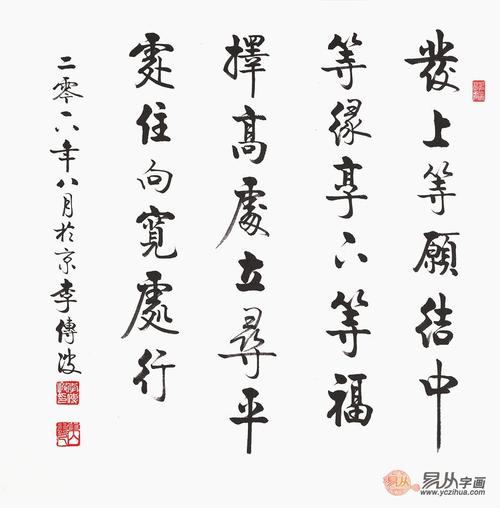 發上等願結中
等緣享下等福
擇高處立尋平
處住向寬處行
二零一八年八月於京李傳波
易从
易从字画
www.yczihua.com